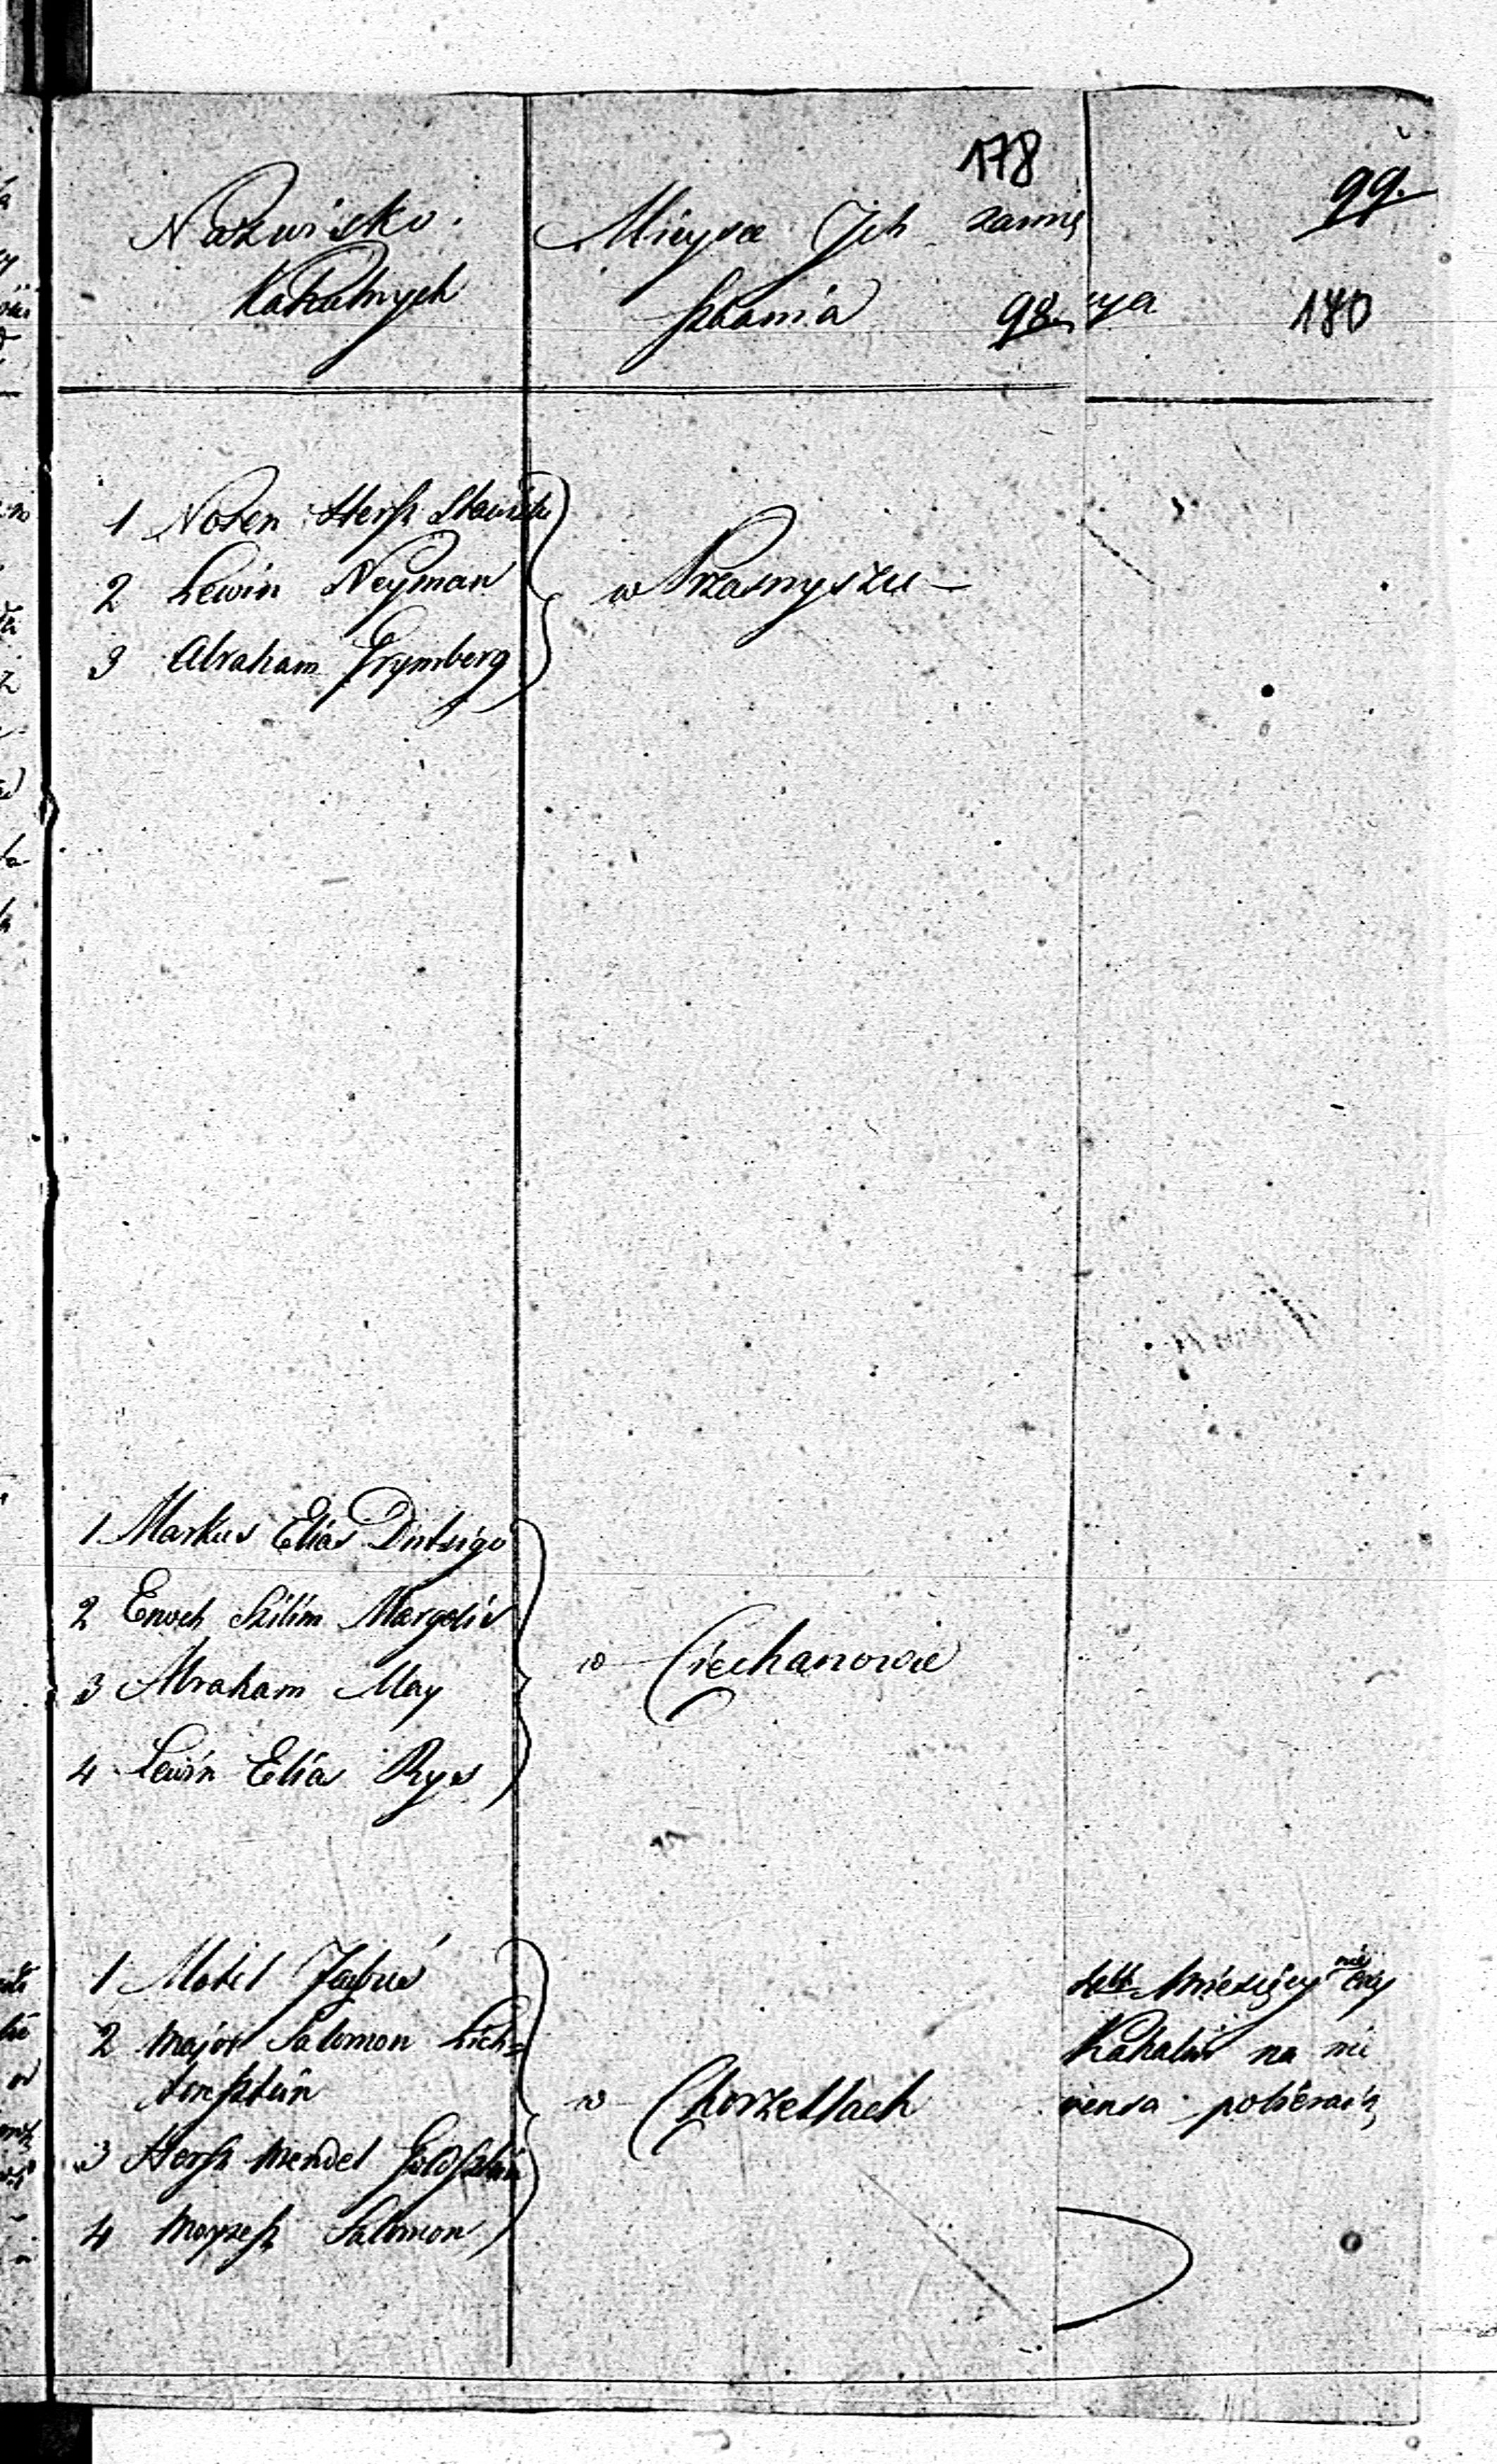 178
99.
Nazwisko
Kahalnych
Mieysce Ich zamię
szkania
98.
cya
180
1 Noten Hersz
2 Lewin Neyman
3 Abraham Grymberg
w Przasnyszu
1 Markus Elias
2 Enoch Szlim Margolis
3 Abraham May
4 Lewin Elias Rys
w Ciechanowie
1 Motel
2 Major Salomon Lich=
tensztein
3 Hersz Mendel Goldsztein
4 Moyzesz Salomon
w Chorzellach
Kahalni na
pobieraią